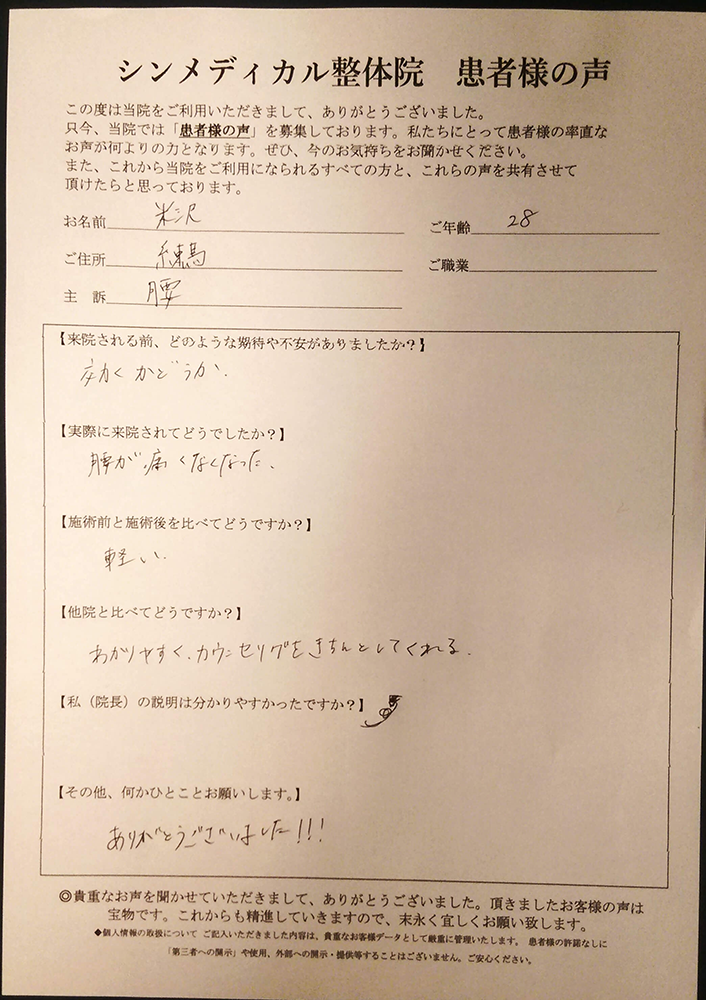 シンメディカル整体院 患者様の声
この度は当院をご利用いただきまして、ありがとうございました。
只今、当院では「患者様の声」を募集しております。私たちにとって患者様の率直な
お声が何よりの力となります。ぜひ、今のお気持ちをお聞かせください。
また、これから当院をご利用になられるすべての方と、これらの声を共有させて
頂けたらと思っております。
お名前 米沢 ご年齢 28
ご住所 練馬 ご職業
主 訴 腰
【来院される前、どのような期待や不安がありましたか?】
効くかどうか.
【実際に来院されてどうでしたか?】
腰が痛くなくなった、
【施術前と施術後を比べてどうですか?】
軽い.
【他院と比べてどうですか?】
わかりやすく、カウンセリグをきちんとしてくれる.
【私(院長)の説明は分かりやすかったですか?】
【その他、何かひとことお願いします。】
ありがとうございました!!!
◎貴重なお声を聞かせていただきまして、ありがとうございました。頂きましたお客様の声は
宝物です。これからも精進していきますので、末永く宜しくお願い致します。
◆個人情報の取扱について ご記入いただきました内容は、貴重なお客様データとして厳重に管理いたします。 患者様の許諾なしに
「第三者への開示」や使用、外部への開示・提供等することはございません。ご安心ください。